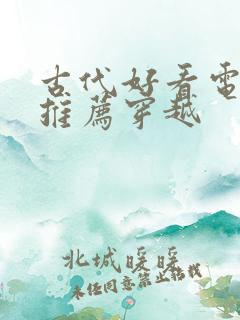 古代好看電
推薦穿越
北城暖暖
未經同意禁止轉載